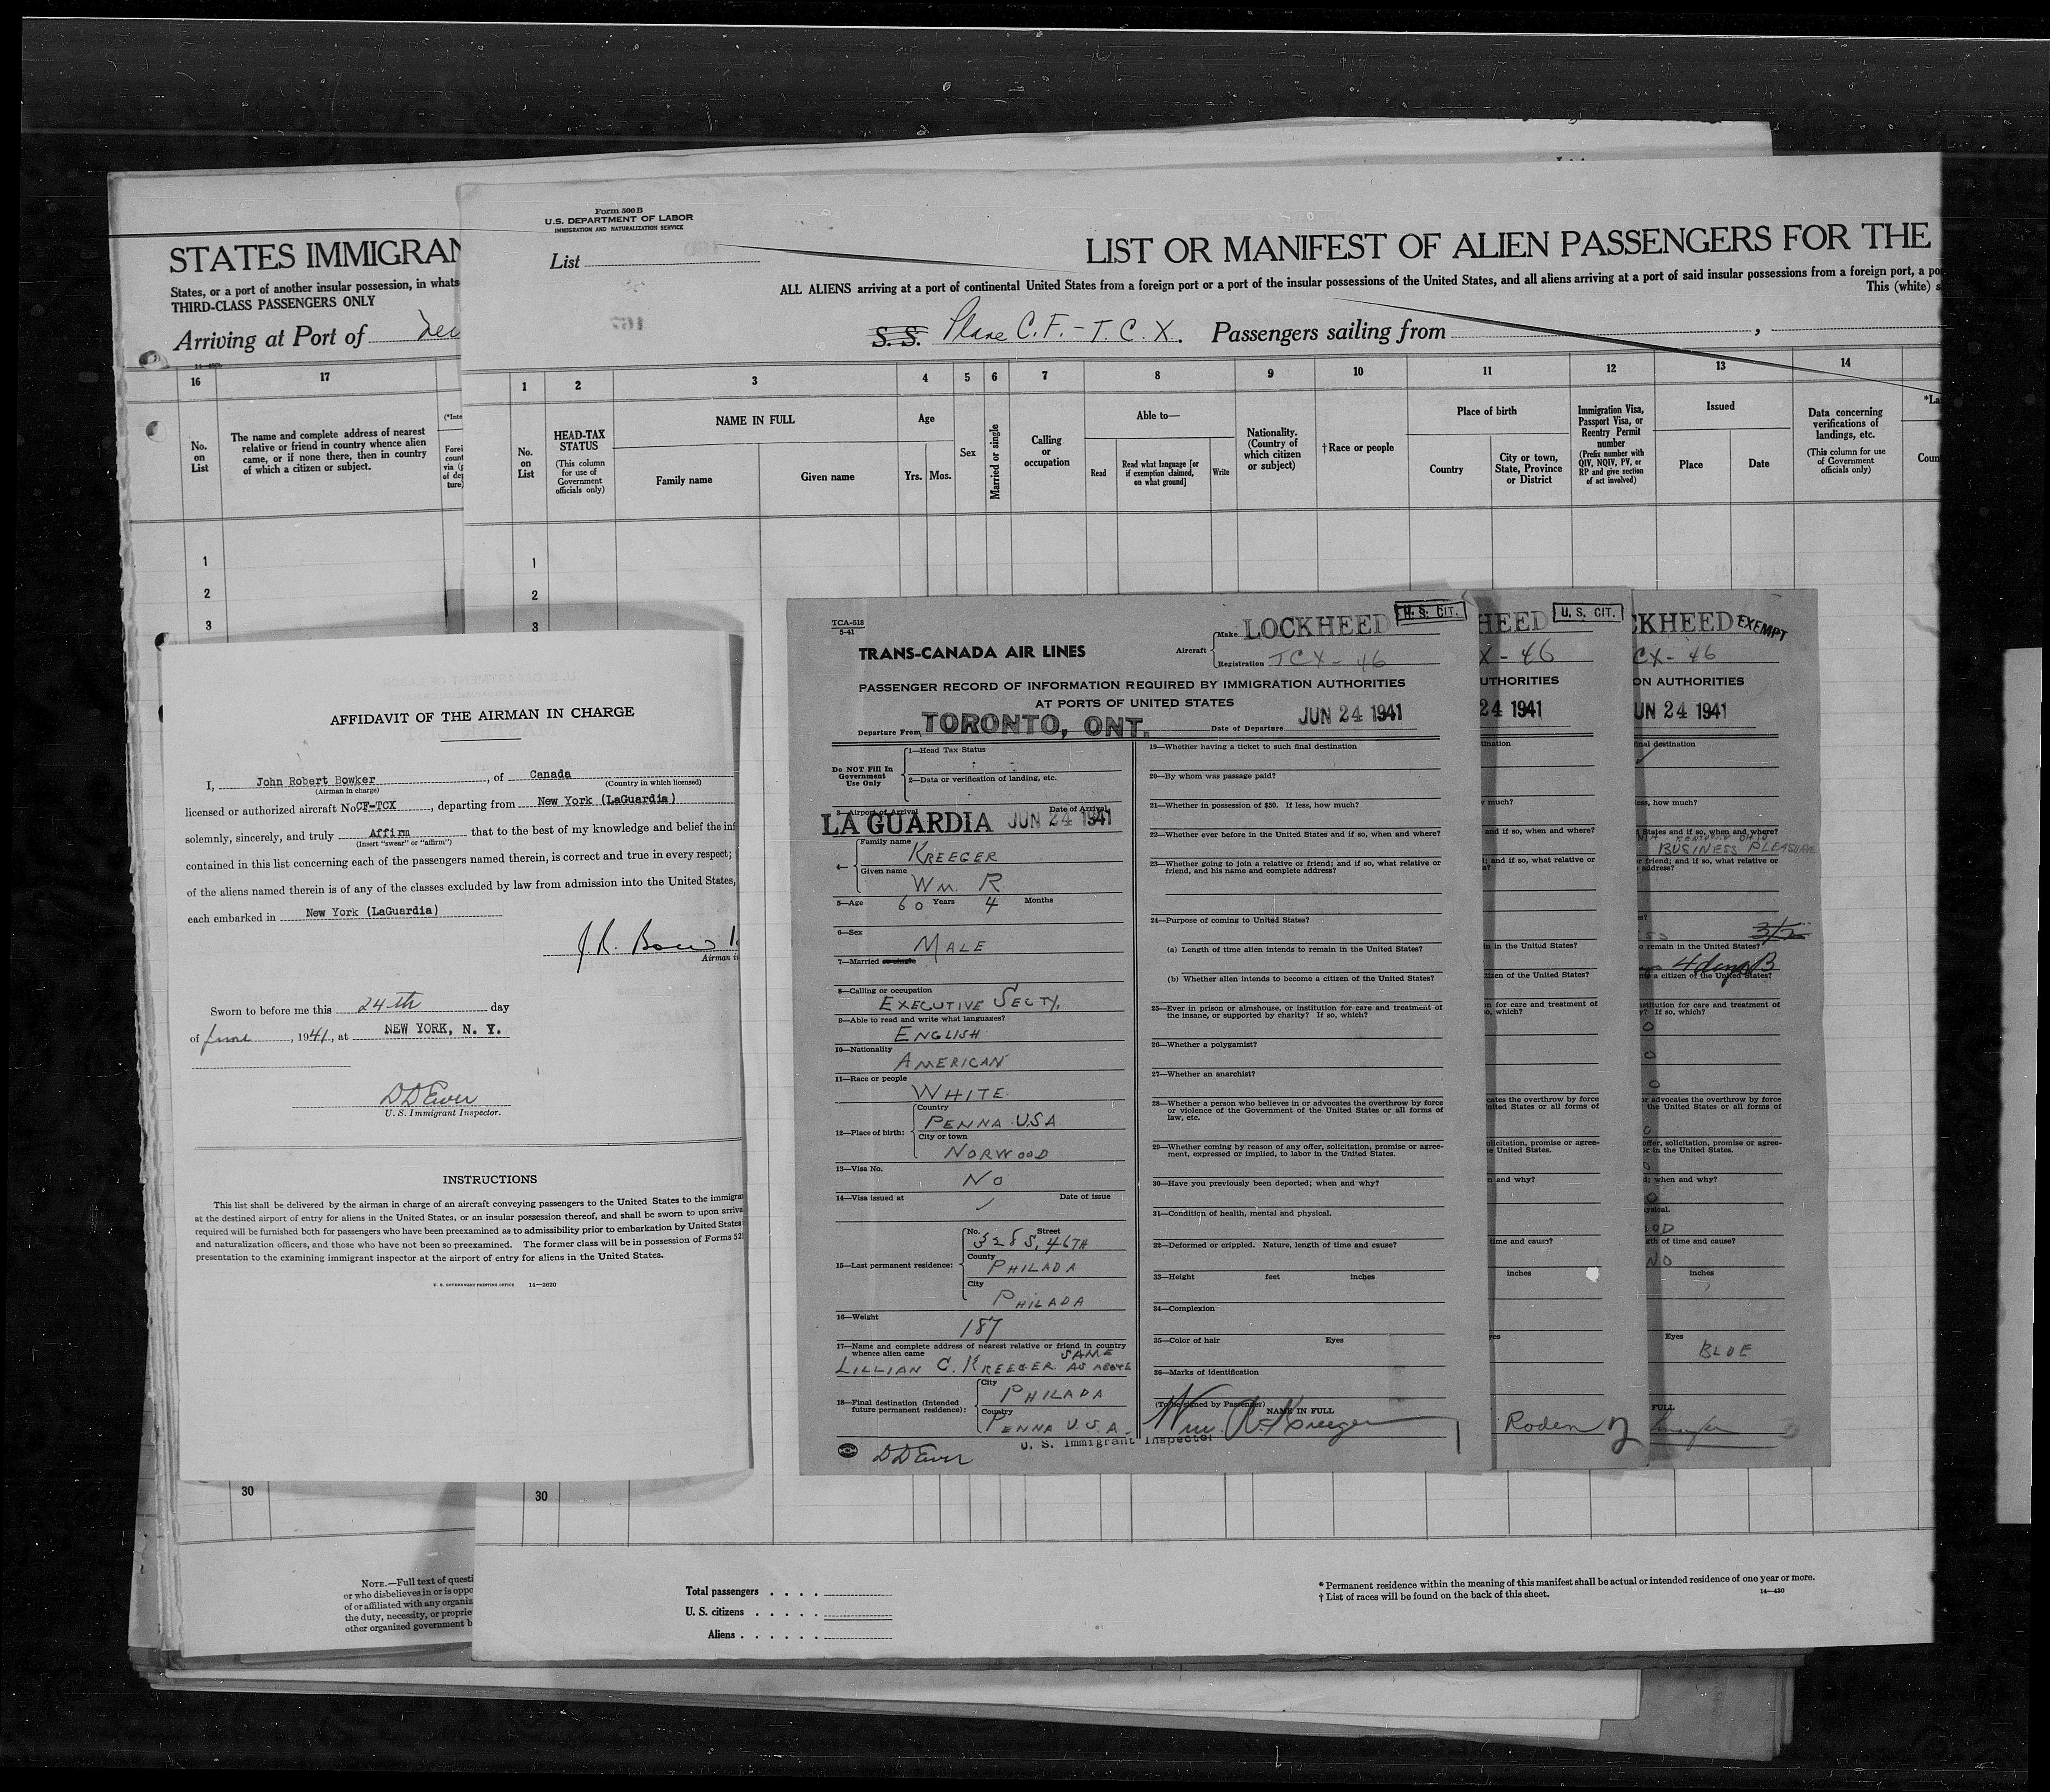 STATES IMMIGRAN
States, or a port of another insular possession, in whats
THIRD-CLASS PASSENGERS ONLY
Arriving at Port of
16
17
No. on List
The name and complete address of nearest
relative or friend in country whence alien
came, or if none there, then in country
of which a citizen or subject.
1
2
3
30
NOTE.—Full text of questi
or who disbelieves in or is oppo
of or affiliated with any organiz
the duty, necessity, or proprie
other organized government b
Form 500 B
U.S. DEPARTMENT OF LABOR
IMMIGRATION AND NATURALIZATION SERVICE
List
LIST OR MANIFEST OF ALIEN PASSENGERS FOR THE
ALL ALIENS arriving at a port of continental United States from a foreign port or a port of the insular possessions of the United States, and all aliens arriving at a port of said insular possessions from a foreign port, a po
This (white) s
S.S. Plane C.F.-T.C.X. Passengers sailing from
1 2 3 4 5 6 7 8 9 10 11 12 13 14
No. on List
HEAD-TAX STATUS
(This column for use of Government officials only)
NAME IN FULL
Family name
Given name
Age
Yrs. Mos.
Sex
Married or single
Calling or occupation
Able to—
Read
Read what language [or if exemption claimed, on what ground]
Write
Nationality. (Country of which citizen or subject)
†Race or people
Place of birth
Country
City or town, State, Province or District
Immigration Visa, Passport Visa, or Reentry Permit number
(Prefix number with QIV, NQIV, PV, or RP and give section of act involved)
Issued
Place
Date
Data concerning verifications of landings, etc.
(This column for use of Government officials only)
*La
Coun
1
2
3
30
Total passengers
U. S. citizens
Aliens
* Permanent residence within the meaning of this manifest shall be actual or intended residence of one year or more.
† List of races will be found on the back of this sheet.
14—430
AFFIDAVIT OF THE AIRMAN IN CHARGE
I, John Robert Bowker, of Canada
(Airman in charge) (Country in which licensed)
licensed or authorized aircraft No CF-TCX, departing from New York (LaGuardia)
solemnly, sincerely, and truly Affirm that to the best of my knowledge and belief the inf
(Insert "swear" or "affirm")
contained in this list concerning each of the passengers named therein, is correct and true in every respect;
of the aliens named therein is of any of the classes excluded by law from admission into the United States,
each embarked in New York (LaGuardia)
Airman i
Sworn to before me this 24th day
of June, 1941, at NEW YORK, N. Y.
DDEwer
U. S. Immigrant Inspector.
INSTRUCTIONS
This list shall be delivered by the airman in charge of an aircraft conveying passengers to the United States to the immigra
at the destined airport of entry for aliens in the United States, or an insular possession thereof, and shall be sworn to upon arriva
required will be furnished both for passengers who have been preexamined as to admissibility prior to embarkation by United States
and naturalization officers, and those who have not been so preexamined. The former class will be in possession of Forms 52
presentation to the examining immigrant inspector at the airport of entry for aliens in the United States.
U. S. GOVERNMENT PRINTING OFFICE 14—2020
TCA-518
5-41
TRANS-CANADA AIR LINES
Aircraft
Make LOCKHEED
Registration TCX-46
U. S. CIT.
PASSENGER RECORD OF INFORMATION REQUIRED BY IMMIGRATION AUTHORITIES
AT PORTS OF UNITED STATES
Departure From TORONTO, ONT. Date of Departure JUN 24 1941
Do NOT Fill In Government Use Only
1—Head Tax Status
2—Data or verification of landing, etc.
3—Airport of Arrival Date of Arrival
LA GUARDIA JUN 24 1941
4—Family name KREEGER
Given name WM. R
5—Age 60 Years 4 Months
6—Sex MALE
7—Married or single
8—Calling or occupation
EXECUTIVE SECTY.
9—Able to read and write what languages?
ENGLISH
10—Nationality
AMERICAN
11—Race or people
WHITE
12—Place of birth: Country
PENNA USA
City or town
NORWOOD
13—Visa No.
NO
14—Visa issued at Date of issue
15—Last permanent residence:
No. Street
S, 46TH
County
PHILADA
City
PHILADA
16—Weight
187
17—Name and complete address of nearest relative or friend in country
whence alien came
LILLIAN C. KREEGER SAME AS ABOVE
18—Final destination (Intended future permanent residence):
City
PHILADA
Country
PENNA U.S.A.
DDEwer
U. S. Immigrant Inspector
19—Whether having a ticket to such final destination
20—By whom was passage paid?
21—Whether in possession of $50. If less, how much?
22—Whether ever before in the United States and if so, when and where?
23—Whether going to join a relative or friend; and if so, what relative or
friend, and his name and complete address?
24—Purpose of coming to United States?
(a) Length of time alien intends to remain in the United States?
(b) Whether alien intends to become a citizen of the United States?
25—Ever in prison or almshouse, or institution for care and treatment of
the insane, or supported by charity? If so, which?
26—Whether a polygamist?
27—Whether an anarchist?
28—Whether a person who believes in or advocates the overthrow by force
or violence of the Government of the United States or all forms of
law, etc.
29—Whether coming by reason of any offer, solicitation, promise or agree-
ment, expressed or implied, to labor in the United States.
30—Have you previously been deported; when and why?
31—Condition of health, mental and physical.
32—Deformed or crippled. Nature, length of time and cause?
33—Height feet inches
34—Complexion
35—Color of hair Eyes
36—Marks of identification
(To be signed by Passenger) NAME IN FULL
Wm. R. Kreeger
1
HEED
U. S. CIT.
X-46
UTHORITIES
24 1941
much?
and if so, when and where?
; and if so, what relative or
in in the United States?
izen of the United States?
n for care and treatment of
o, which?
cates the overthrow by force
nited States or all forms of
olicitation, promise or agree-
e United States.
n and why?
time and cause?
inches
Roden 2
CKHEED
EXEMPT
CX-46
ON AUTHORITIES
UN 24 1941
final destination
less, how much?
States and if so, when and where?
BUSINESS PLEASURE
r friend; and if so, what relative or
address?
o remain in the United States?
4 days B
a citizen of the United States?
stitution for care and treatment of
? If so, which?
or advocates the overthrow by force
the United States or all forms of
offer, solicitation, promise or agree-
or in the United States.
d; when and why?
ysical.
gth of time and cause?
NO
inches
Eyes
BLUE
FULL
3